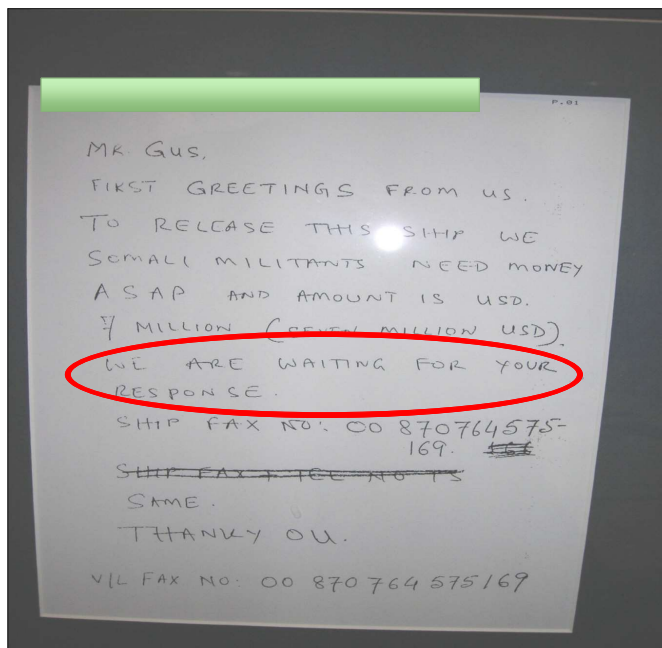 P.01
MR. GUS,
FIRST GREETINGS FROM US.
TO RELEASE THIS SIHP WE
SOMALI MILITANTS NEED MONEY
ASAP AND AMOUNT IS USD.
7 MILLION (SEVEN MILLION USD).
WE ARE WAITING FOR YOUR
RESPONSE.
SHIP FAX NO: 00 870764575-
169.
SHIP FAX + TEL NO IS
SAME.
THANKY OU.
V/L FAX NO: 00 870 764 575169